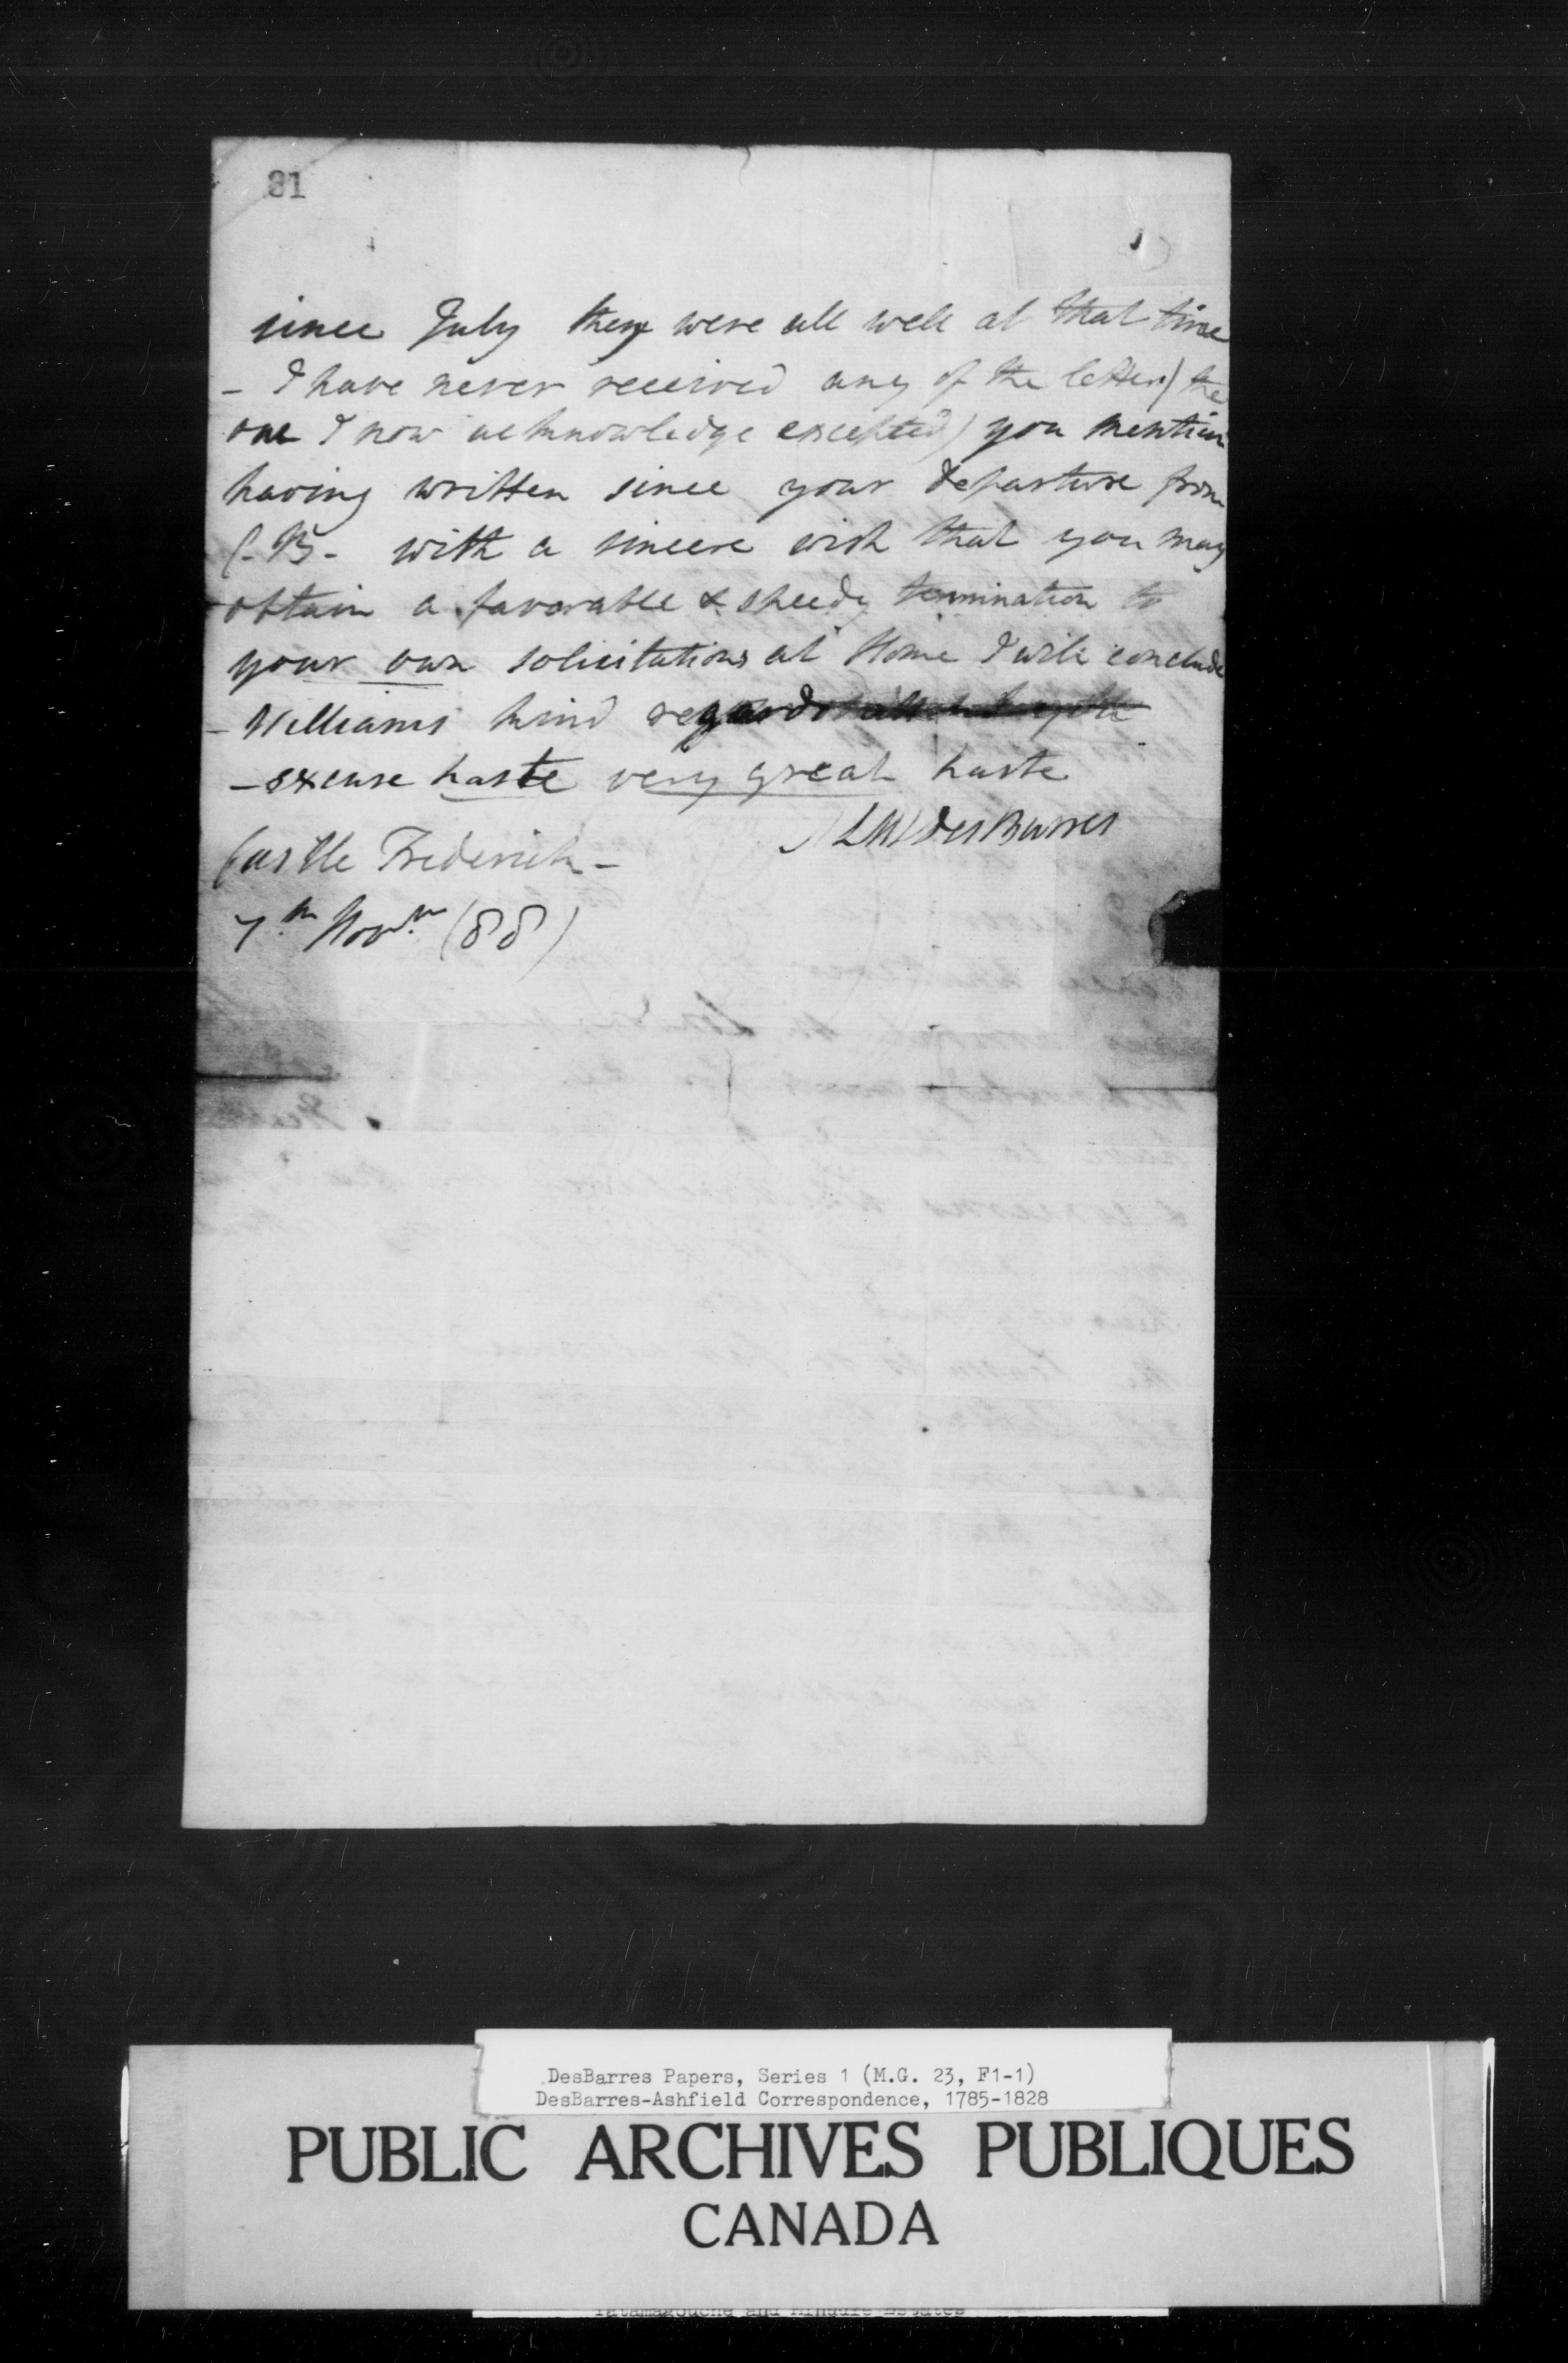 81
since July they were all well at that time
- I have never received any of the letters (the
one I now acknowledge excepted) you mention
having written since your departure from
C.B- with a sincere wish that you may
obtain a favorable & speedy termination to
your own solicitations at Home I will conclude
- Williams kind regards
- excuse haste very great haste
DesBarres
Castle Frederick -
7th Novr (88)
DesBarres Papers, Series 1 (M.G. 23, F1-1)
DesBarres-Ashfield Correspondence, 1785-1828
PUBLIC ARCHIVES PUBLIQUES
CANADA
Tatamagouche and Minudie Estates